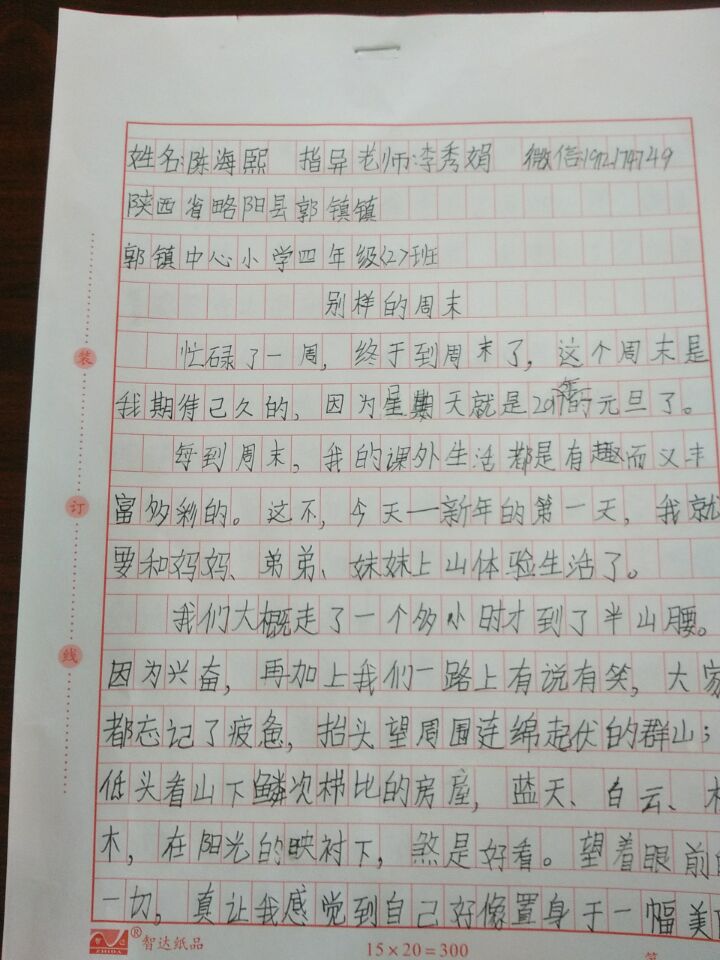 姓名:陈海熙 指异老师:李秀娟 微信:192174749
陕西省略阳县郭镇镇
郭镇中心小学四年级<2>班
别样的周末
忙碌了一周，终于到周末了，这个周末是
我期待已久的，因为星期天就是2019年的元旦了。
每到周末，我的课外生活都是有趣而又丰
富多彩的。这不，今天—新年的第一天，我就
要和妈妈、弟弟、妹妹上山体验生活了。
我们大概走了一个多小时才到了半山腰。
因为兴奋，再加上我们一路上有说有笑，大家
都忘记了疲惫，抬头望周围连绵起伏的群山；
低头看山下鳞次梯比的房屋，蓝天、白云、
木，在阳光的映衬下，煞是好看。望着眼前
一切。真让我感觉到自己好像置身于一幅美
装
订
线
智达纸品
15×20=300